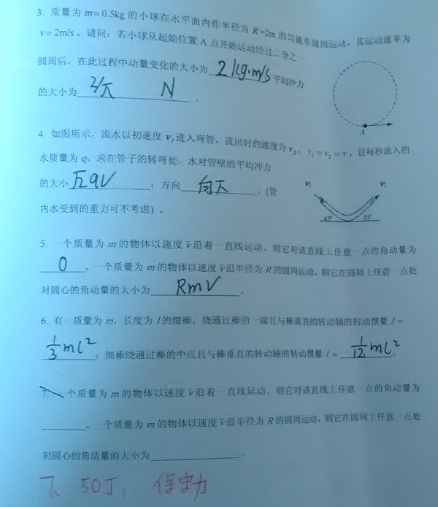 3. 质量为 m=0.5kg 的小球在水平面内作半径为 R=2m 的匀速率圆周运动，其运动速率为
v=2m/s。请问：若小球从起始位置 A 点开始运动经过二分之一
圆周后，在此过程中动量变化的大小为 2 kg·m/s 平均冲力
的大小为 2/π N 。
A
4. 如图所示，流水以初速度 v₁ 进入弯管，流出时的速度为 v₂，v₁=v₂=v。设每秒流入的
水质量为 q，求在管子的转弯处，水对管壁的平均冲力
的大小 √2qv ；方向 向下 。（管
内水受到的重力可不考虑）。
v₁ v₂
45° 45°
5. 一个质量为 m 的物体以速度 v⃗ 沿着一直线运动，则它对该直线上任意一点的角动量为
0 。一个质量为 m 的物体以速度 v⃗ 沿半径为 R 的圆周运动，则它在圆周上任意一点处
对圆心的角动量的大小为 Rmv 。
6. 有一质量为 m，长度为 l 的细棒，绕通过棒的一端且与棒垂直的转动轴的转动惯量 J =
1/3 ml² ；细棒绕通过棒的中点且与棒垂直的转动轴的转动惯量 J = 1/12 ml² 。
7. 一个质量为 m 的物体以速度 v⃗ 沿着一直线运动，则它对该直线上任意一点的角动量为
。一个质量为 m 的物体以速度 v⃗ 沿半径为 R 的圆周运动，则它在圆周上任意一点处
对圆心的角动量的大小为 。
7、50J，保守力